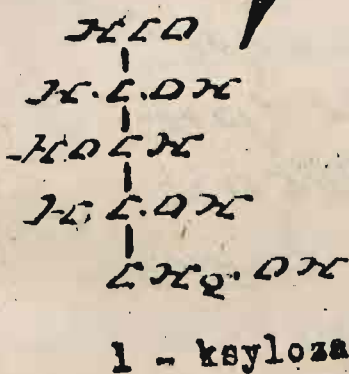 HCO
H.C.OH
HOCH
H.C.OH
CH2.OH
1 - ksyloza